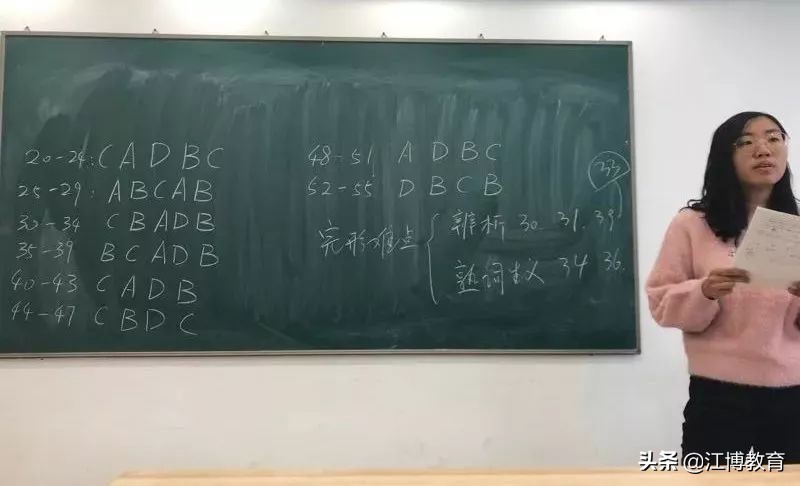 20-24: C A D B C
25-29: A B C A B
30-34 C B A D B
35-39 B C A D B
40-43 C A D B
44-47 C B D C
48-51 A D B C
52-55 D B C B
完形难点
辨析 30. 31. 39
33
熟词生义 34 36.
头条 @江博教育